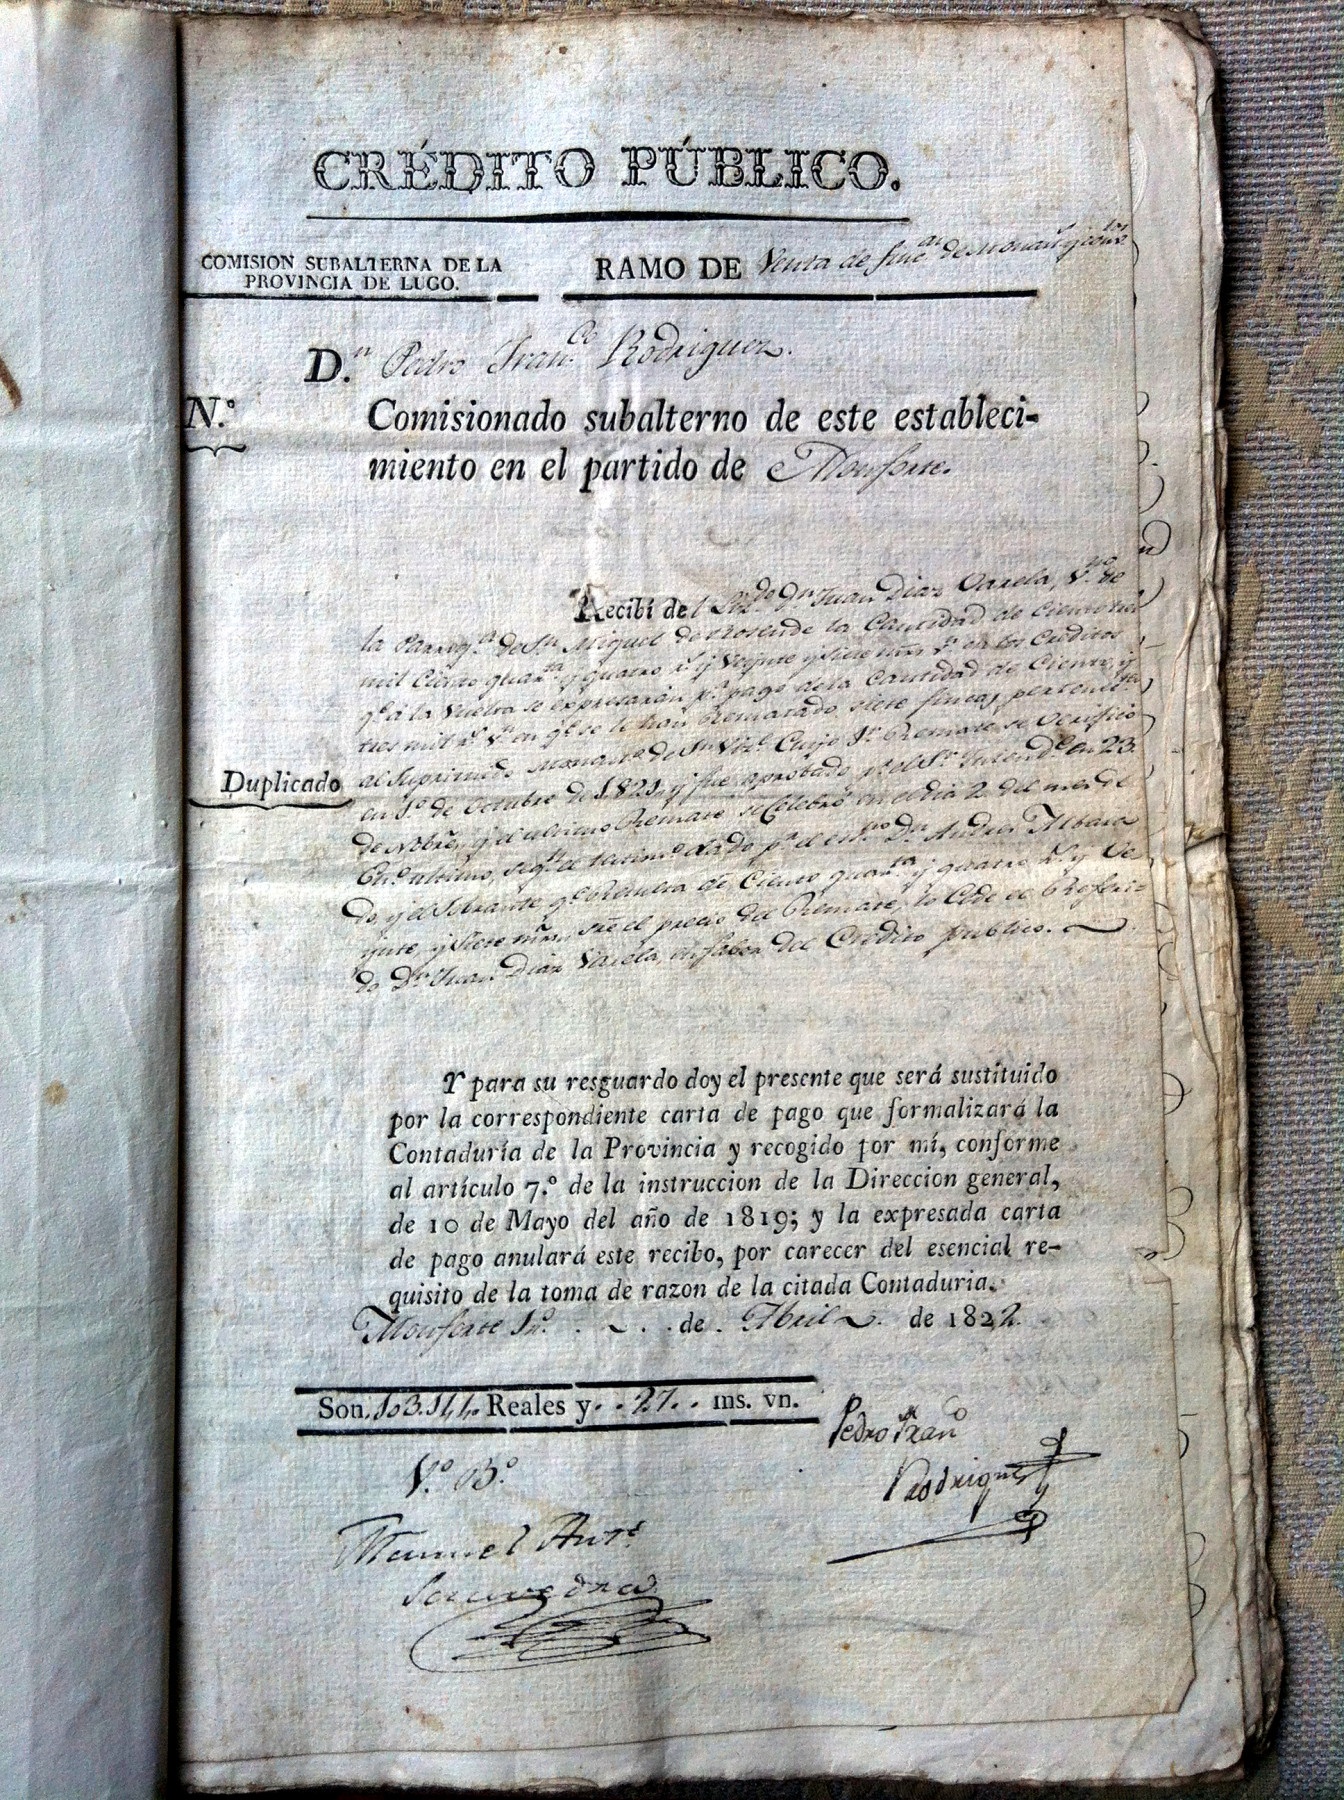 CRÉDITO PÚBLICO.
COMISION SUBALTERNA DE LA
PROVINCIA DE LUGO.
RAMO DE Venta de fincas de Monast.s y conv.tos
D.n Pedro Fran.co Rodriguez.
N.º
Comisionado subalterno de este estableci-
miento en el partido de Monforte.
Recibí del Liz.do Dn Juan Diaz Varela, V.no de
la Parroq.a de Sn Miguel de Rosende la Cantidad de Ciento tres
mil Ciento quar.ta y quatro r.s y Veijnte y siete mrs v.n en los Creditos
q.e á la Vuelta se expresarán p.r pago de la Cantidad de Ciento y
tres mil r.s v.n en q.e se le han Rematado siete fincas pertenec.tes
al Suprimido Monast.o de Sn Vic.e Cuyo 1.r Remate se Verifico
Duplicado
en 1.º de Octubre de 1821 y fue aprobado p.r el Sr Intend.e en 23
de Nobre, y el ultimo Remate se Celebró en el dia 2 del mes de
En.o ultimo, seg.n el testim.o dado p.r el ess.no Dn Andres Albara
do, y el Sobrante q.e Resulta de Ciento quar.ta y quatro r.s y Ve
ijnte y siete mrs, sre el precio del Remate, lo Cede el Referi=
do Dn Juan Diaz Varela, enfabor del Credito publico.
Y para su resguardo doy el presente que será sustituido
por la correspondiente carta de pago que formalizará la
Contaduría de la Provincia y recogido por mí, conforme
al artículo 7.º de la instruccion de la Direccion general,
de 10 de Mayo del año de 1819; y la expresada carta
de pago anulará este recibo, por carecer del esencial re-
quisito de la toma de razon de la citada Contaduria.
Monforte 1.º de Abril de 1822.
Son 103.144. Reales y 27 ms. vn.
Pedro Fran.co
Rodriguez
V.º B.º
Manuel Ant.º
Saavedra